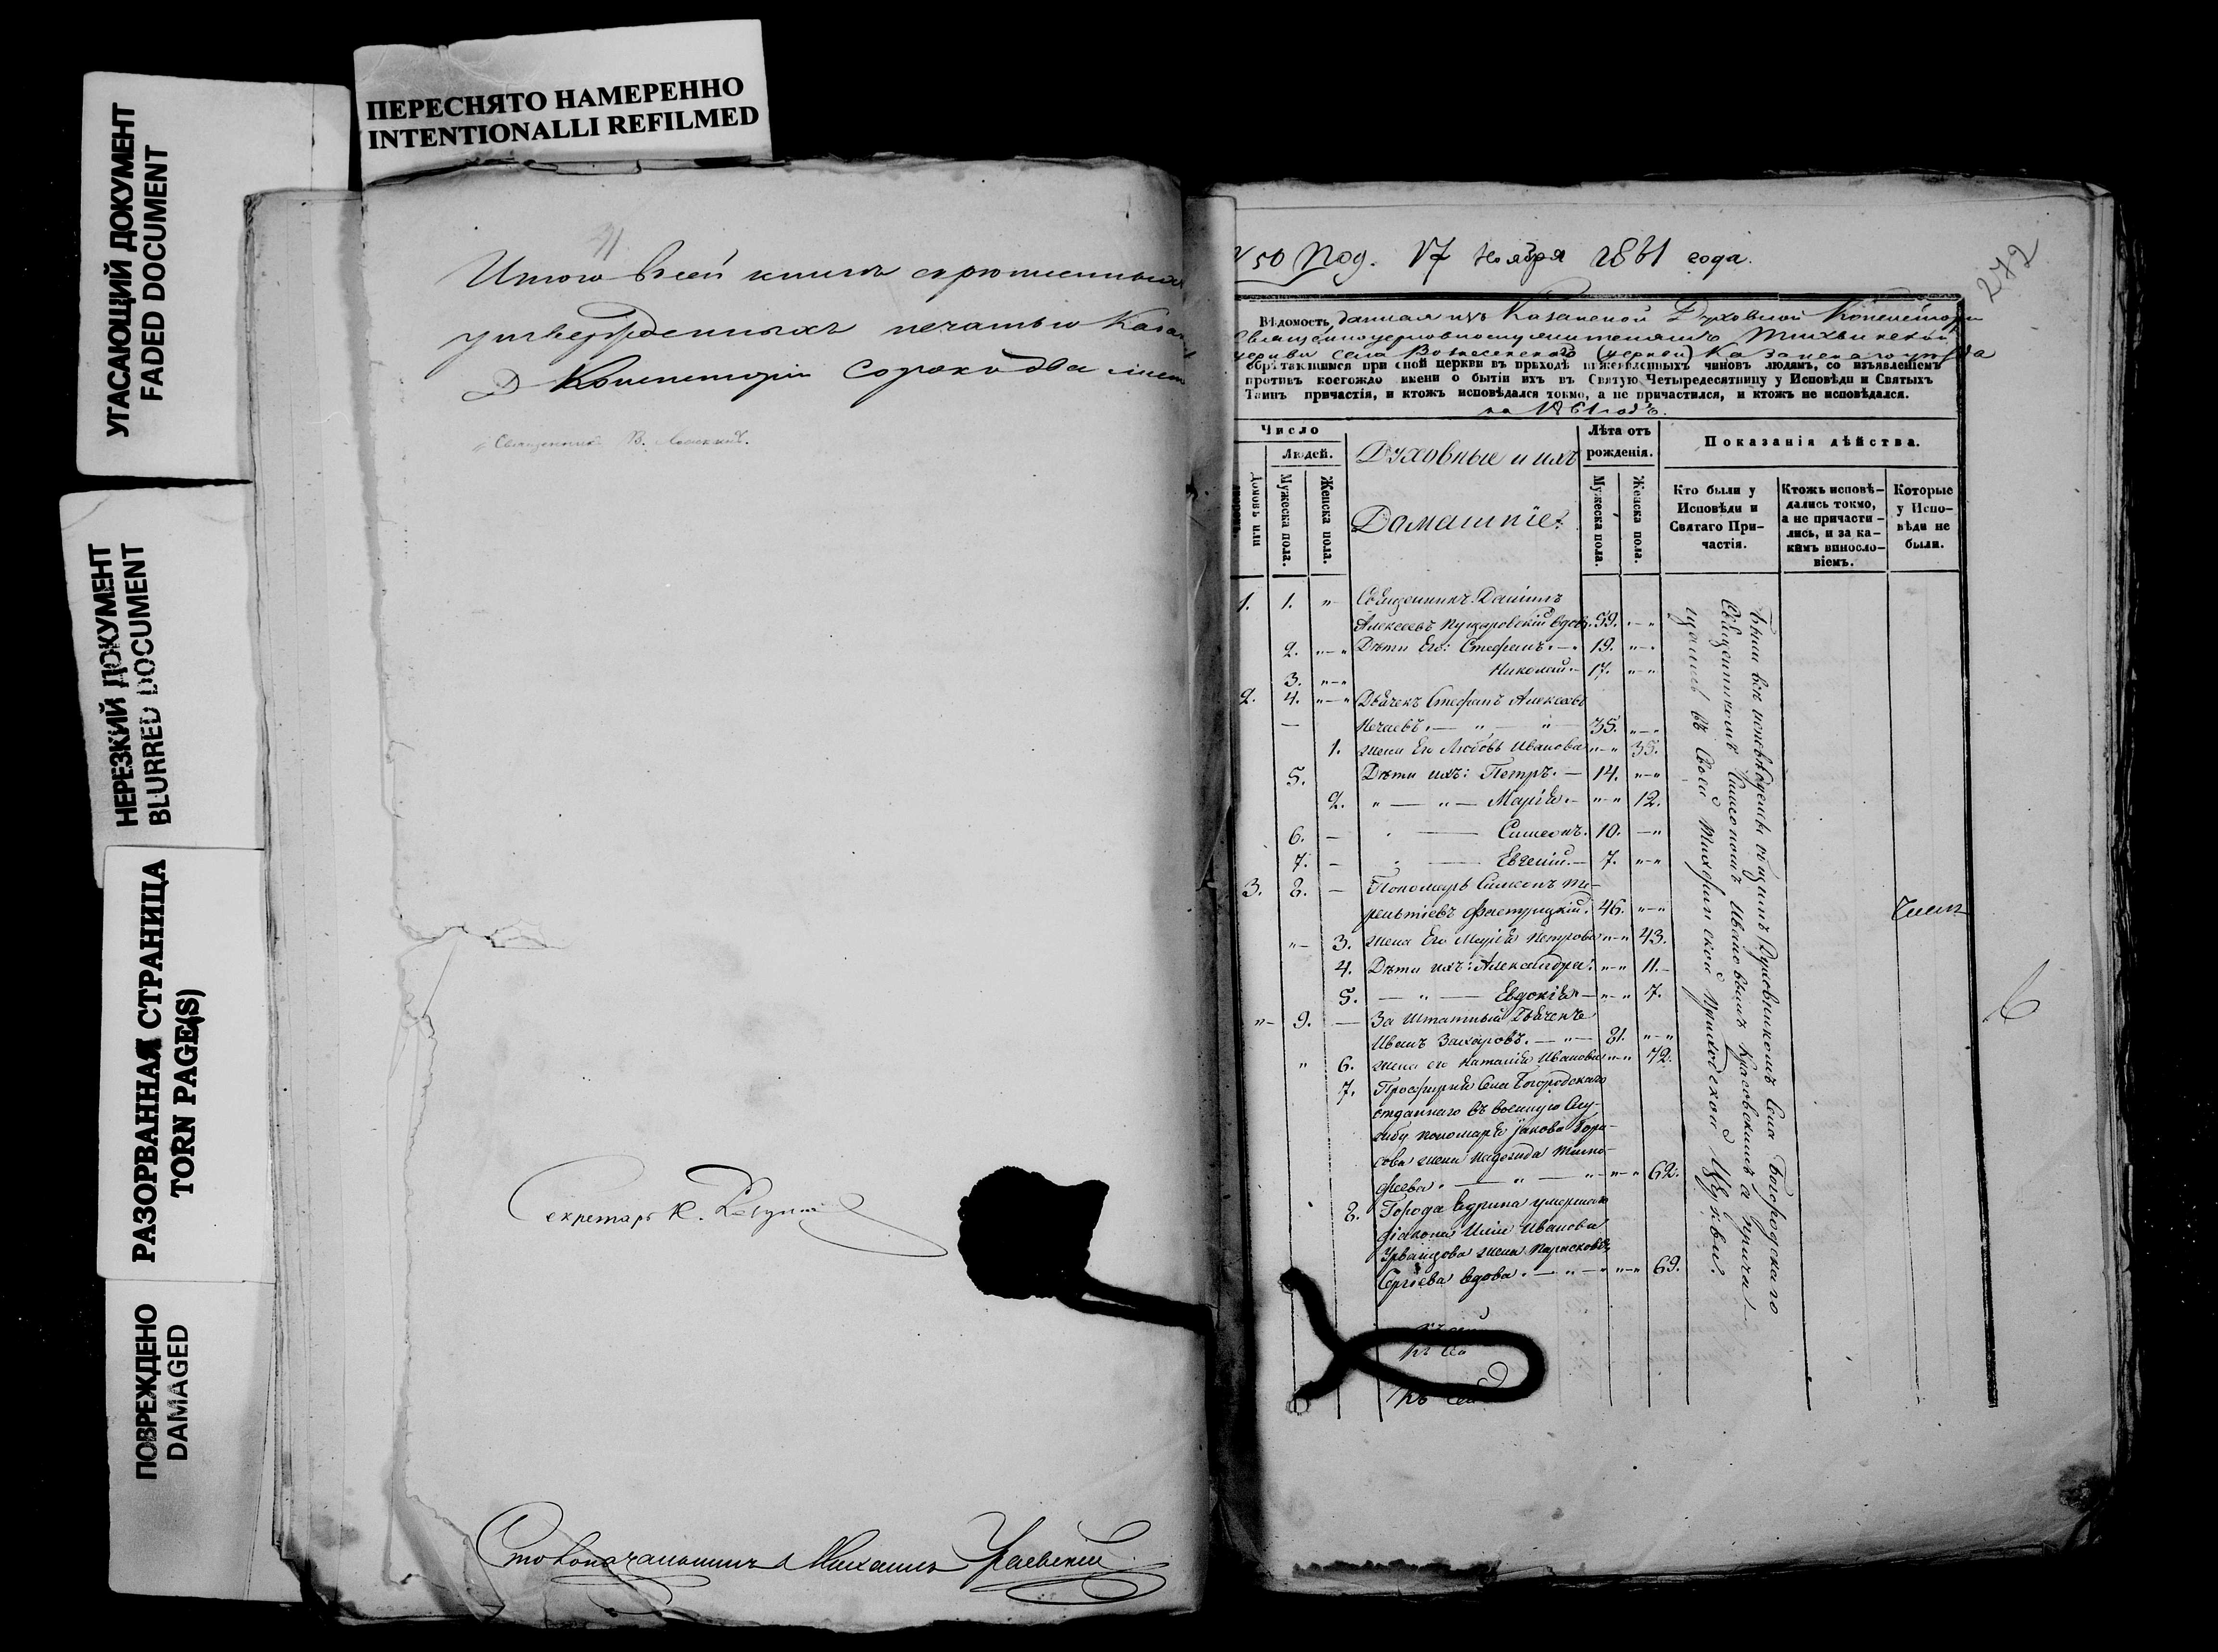 ПЕРЕСНЯТО НАМЕРЕННО
INTENTIONALLI REFILMED
УГАСАЮЩИЙ ДОКУМЕНТ
FADED DOCUMENT
НЕРЕЗКИЙ ДОКУМЕНТ
BLURRED DOCUMENT
РАЗОРВАННАЯ СТРАНИЦА
TORN PAGE(S)
ПОВРЕЖДЕНО
DAMAGED
Итого всей книги скрепленныхъ
утвержденныхъ печатью Казан
Д Консисторіи Сорокъ два лист
Священникъ В.
Секретарь К.
Столоначальникъ Михаилъ
№ 50 Под. 17 Ноября 1861 года.
272
Вѣдомость, данная изъ Казанской Духовной Консисторіи
Священноцерковнослужителямъ Тихвинской
церкви села Вознесенскаго Казанскаго уѣзда
обрѣтающимся при оной церкви въ приходѣ нижеявленныхъ чиновъ людямъ, со изъявленіемъ
противъ коегождо имени о бытіи ихъ въ Святую Четыредесятницу у Исповѣди и Святыхъ
Таинъ причастія, и ктожъ исповѣдался токмо, а не причастился, и ктожъ не исповѣдался.
на 1861 годъ.
Число
Людей.
Домовъ или
Мужеска пола.
Женска пола.
Духовные и ихъ
Домашніе:
Лѣта отъ
рожденія.
Мужеска пола.
Женска пола.
Показанія дѣйства.
Кто были у
Исповѣди и
Святаго При-
частія.
Ктожъ исповѣ-
дались токмо,
а не причасти-
лись, и за ка-
кимъ винosло-
віемъ.
Которые
у Испо-
вѣди не
были.
1. 1. " Священникъ Даніилъ
Алексеевъ вдовъ. 59. "-"
2. "-" Дѣти Его: Стефанъ. - 19. "-"
3. "-" Николай. - 17. "-"
2. 4. "-" Дьячекъ Стефанъ Алексѣевъ
Нечаевъ. - " - " 35. "-"
1. жена Его Любовь Иванова "-" 35.
5. Дѣти ихъ: Петръ. - 14. "-"
2. " - " - Марія. - "-" 12.
6. - Симеонъ. 10. -"
7. - Евгеній. - 7. "-"
3. 8. - Пономарь Симеонъ Те-
рентіевъ 46. "-"
"- 3. жена Его Марія Петрова "-" 43.
4. Дѣти ихъ: Александра. "-" 11. -
5. - " - Евдокія - "-" 7.
"- 9. - За Штатный Дьячекъ
Иванъ Захаровъ. - "- 81. "-"
" 6. жена его Наталія Иванова "-" 72.
7. Просфирня Села Богородскаго
отданнаго въ военную Слу-
жбу пономаря Іакова Бори-
сова жена Надежда Тимо-
феева. - " - "-" 62.
8. Города умершаго
діакона Иліи Иванова
жена Параскева
Сергіева вдова. - " - "-" 69.
Были всѣ исповѣданы общимъ Духовникомъ Села Богородскаго
Священникомъ Ивановымъ Красовскимъ а прича-
щались въ своей Тихвинской приходской Церкви.